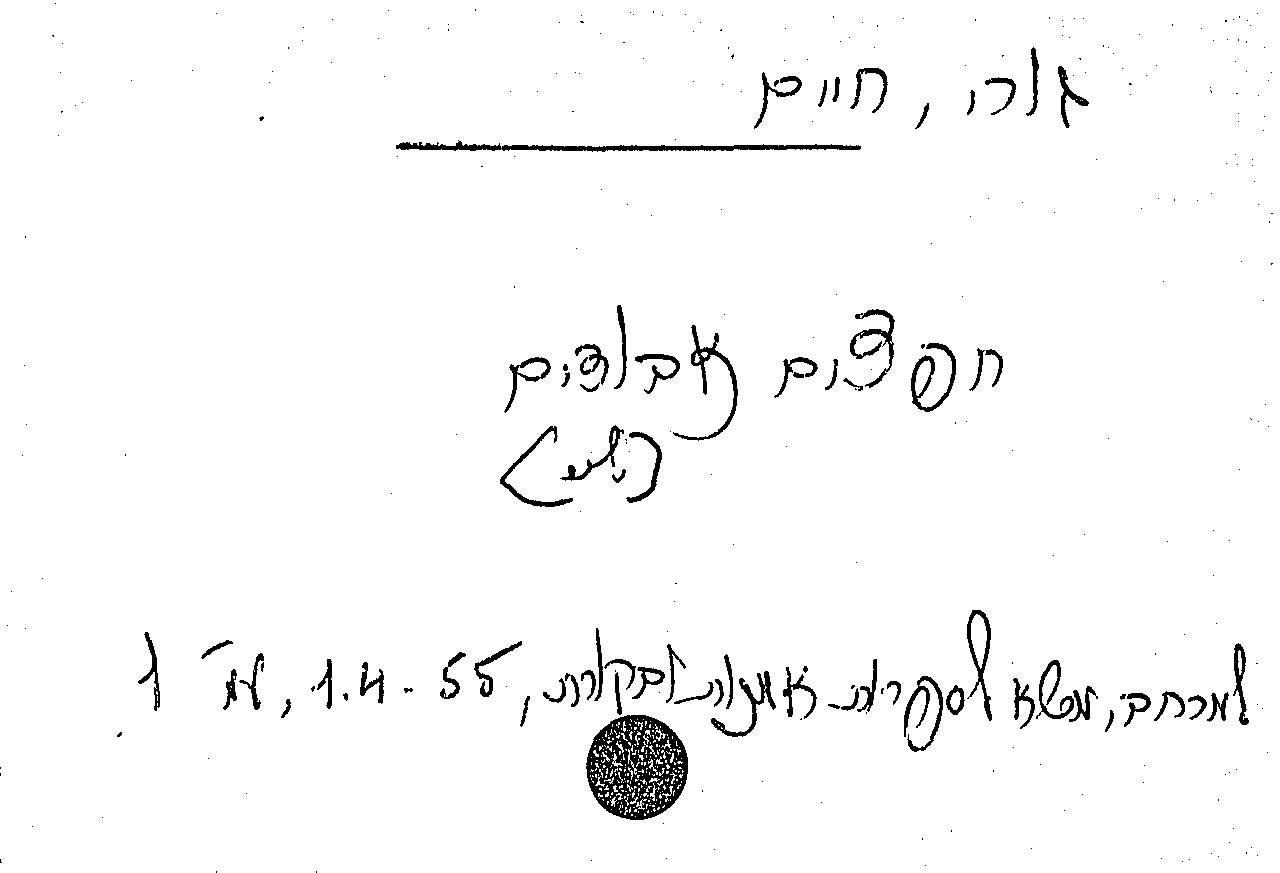 גורי, חיים
חפצים אבודים
(שיר)
למרחב, משא לספרות אמנות ובקורת, 1.4.55, עמ' 1